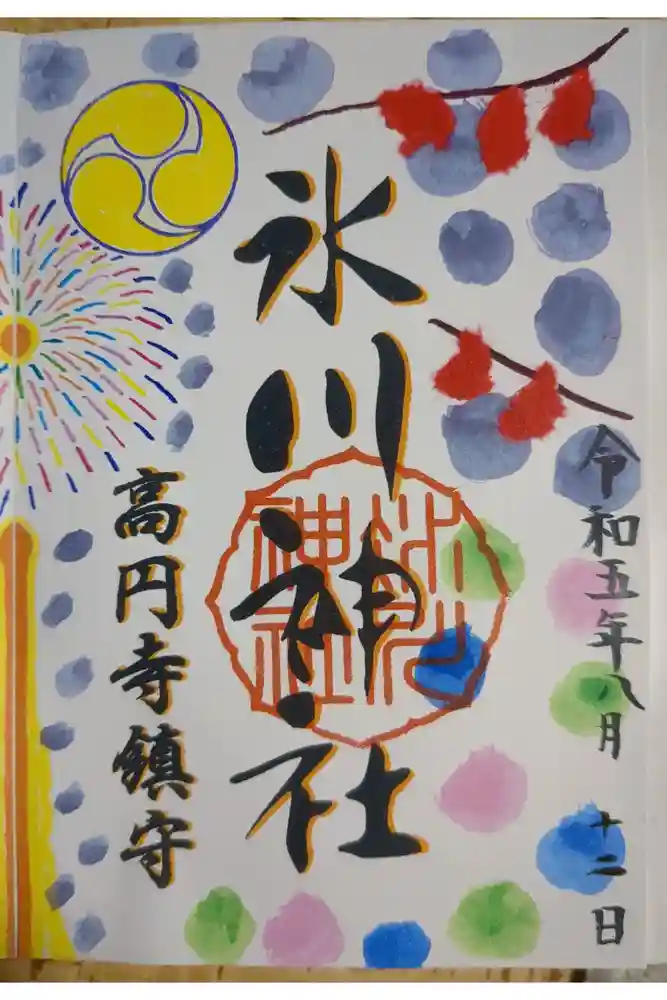 令和五年八月十二日
氷川神社
氷川神社
高円寺鎮守